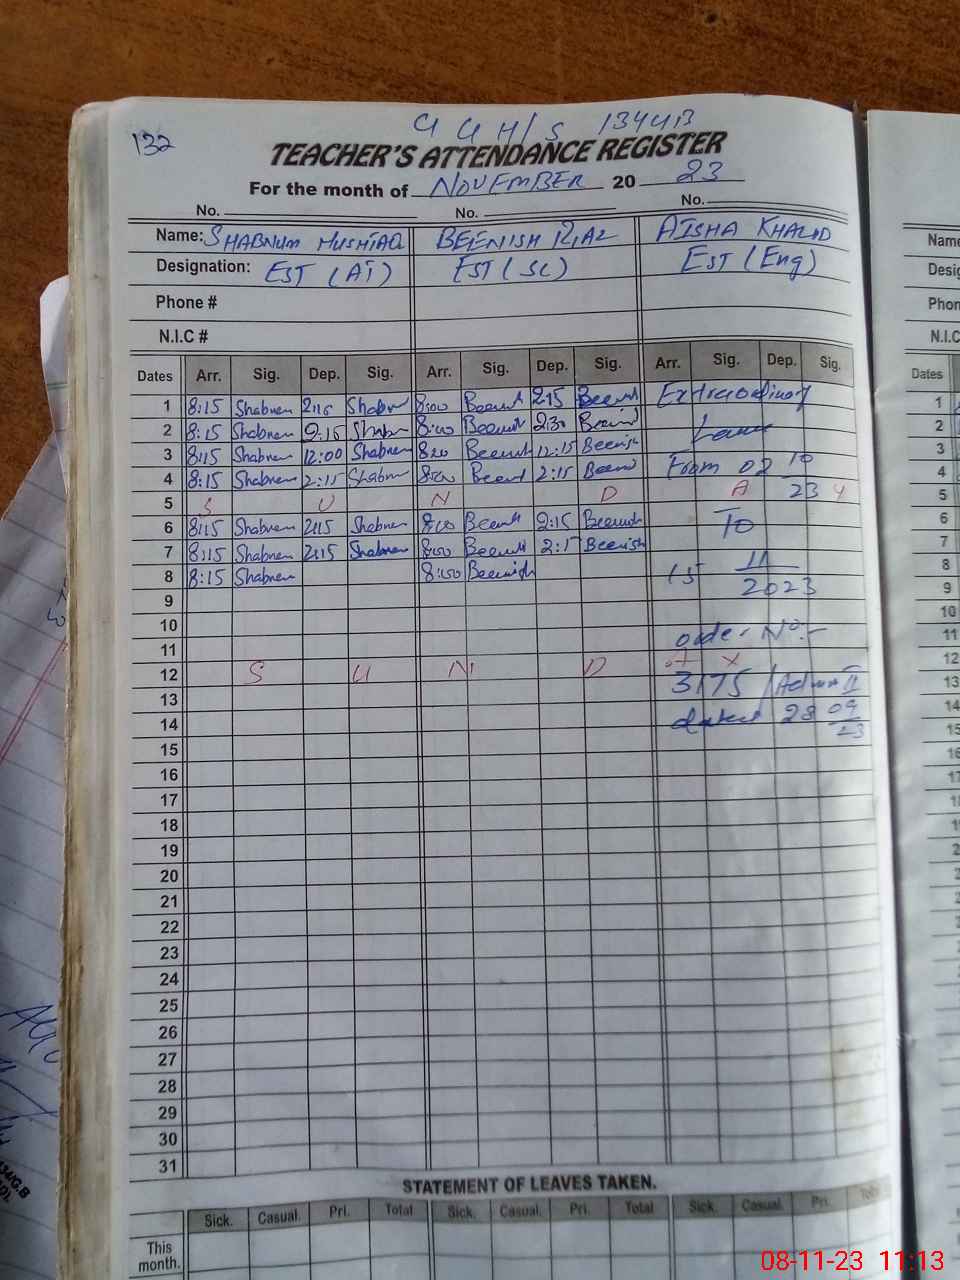 132
G G H/S 134GB
TEACHER'S ATTENDANCE REGISTER
For the month of NOVEMBER 20 23
No. No. No.
Name: SHABNUM MUSHTAQ BEENISH RIAZ AISHA KHALID
Designation: EST (AT) EST (SC) EST (Eng)
Phone #
N.I.C #
Dates Arr. Sig. Dep. Sig. Arr. Sig. Dep. Sig. Arr. Sig. Dep. Sig.
1 8:15 Shabnam 2:15 Shabnam 8:00 Beenish 2:15 Beenish Extraordinary
2 8:15 Shabnam 2:15 Shabnam 8:00 Beenish 2:30 Beenish Leave
3 8:15 Shabnam 12:00 Shabnam Beenish 12:15 Beenish
4 8:15 Shabnam 2:15 Shabnam 8:00 Beenish 2:15 Beenish From 02 10
5 S U N D A 23 Y
6 8:15 Shabnam 2:15 Shabnam 8:00 Beenish 2:15 Beenish To
7 8:15 Shabnam 2:15 Shabnam 8:00 Beenish 2:15 Beenish
8 8:15 Shabnam 8:00 Beenish 15 11
9 2023
10
11 order No:-
12 S U N D A Y
13 3175 /Admn II
14 dated 28 09
15 23
16
17
18
19
20
21
22
23
24
25
26
27
28
29
30
31
STATEMENT OF LEAVES TAKEN.
Sick. Casual. Pri. Total Sick. Casual. Pri. Total Sick. Casual. Pri. Total
This
month.
Name
Desig
Phon
N.I.C
Dates
1
2
3
4
5
6
7
8
9
10
11
12
13
14
15
16
17
08-11-23 11:13